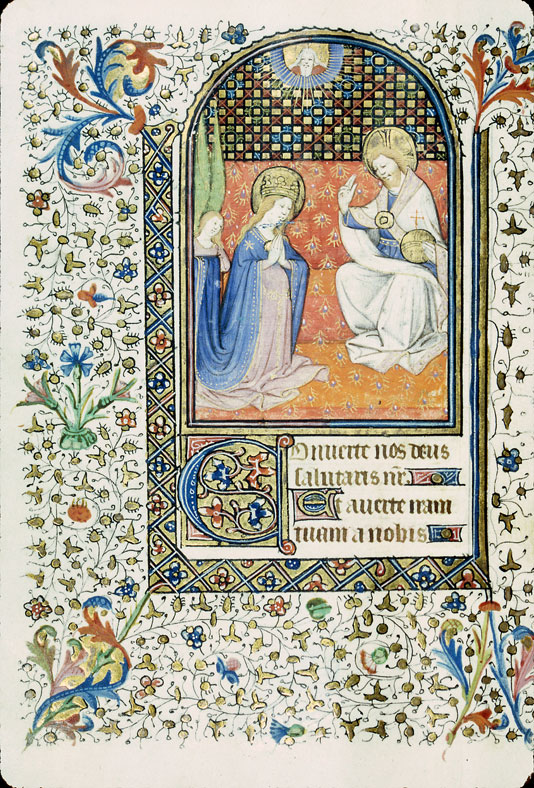 Onuerte nos deus
salutaris nr̃
Et auerte iram
tuam a nobis